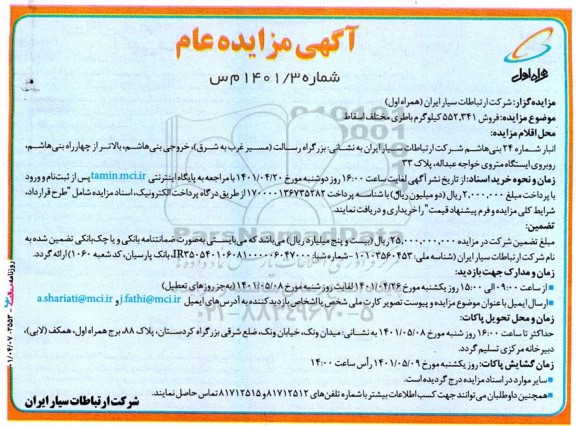 آگهی مزایده عام
شماره ۱۴۰۱/۳ م س
همراه اول
مزایده‌گزار: شرکت ارتباطات سیار ایران (همراه اول)
موضوع مزایده: فروش ۵۵۲,۳۴۱ کیلوگرم باطری مختلف اسقاط
محل اقلام مزایده:
انبار شماره ۲۴ بنی‌هاشم شرکت ارتباطات سیار ایران به نشانی: بزرگراه رسالت (مسیر غرب به شرق)، خروجی بنی‌هاشم، بالاتر از چهارراه بنی‌هاشم،
روبروی ایستگاه متروی خواجه عبداله، پلاک ۳۳
زمان و نحوه خرید اسناد: از تاریخ نشر آگهی لغایت ساعت ۱۶:۰۰ روز دوشنبه مورخ ۱۴۰۱/۰۴/۲۰ با مراجعه به پایگاه اینترنتی tamin.mci.ir پس از ثبت‌نام و ورود
با پرداخت مبلغ ۲,۰۰۰,۰۰۰ ریال (دو میلیون ریال) با شناسه پرداخت ۱۷۰۰۰۰۱۳۶۷۳۵۲۸۲ از طریق درگاه پرداخت الکترونیک، اسناد مزایده شامل "طرح قرارداد،
شرایط کلی مزایده و فرم پیشنهاد قیمت" را خریداری و دریافت نمایند.
تضمین:
مبلغ تضمین شرکت در مزایده ۲۵,۰۰۰,۰۰۰,۰۰۰ ریال (بیست و پنج میلیارد ریال) می‌باشد که می‌بایستی به‌صورت ضمانتنامه بانکی و یا چک‌بانکی تضمین شده به
نام شرکت ارتباطات سیار ایران (شناسه ملی: ۱۰۱۰۳۵۶۰۴۵۳ - شماره شبا: بانک پارسیان، کد شعبه ۱۰۶۰) ارائه گردد.
زمان و مدارک جهت بازدید:
از ساعت ۰۹:۰۰ الی ۱۵:۰۰ روز یکشنبه مورخ ۱۴۰۱/۰۴/۲۶ لغایت روز شنبه مورخ ۱۴۰۱/۰۵/۰۸ (به‌جز روزهای تعطیل)
ارسال ایمیل با عنوان موضوع مزایده و پیوست تصویر کارت ملی شخص یا اشخاص بازدیدکننده به آدرس‌های ایمیل j.fathi@mci.ir و a.shariati@mci.ir
زمان و محل تحویل پاکات:
حداکثر تا ساعت ۱۶:۰۰ روز شنبه مورخ ۱۴۰۱/۰۵/۰۸ به نشانی: میدان ونک، خیابان ونک، ضلع شرقی بزرگراه کردستان، پلاک ۸۸، برج همراه اول، همکف (لابی)،
دبیرخانه مرکزی تسلیم گردد.
زمان گشایش پاکات: روز یکشنبه مورخ ۱۴۰۱/۰۵/۰۹ رأس ساعت ۱۴:۰۰
سایر موارد در اسناد مزایده درج گردیده است.
همچنین داوطلبان می‌توانند جهت کسب اطلاعات بیشتر با شماره تلفن‌های ۸۱۷۱۲۵۱۲ و ۸۱۷۱۲۵۱۵ تماس حاصل نمایند.
شرکت ارتباطات سیار ایران
ParsNamadData
۰۲۱-۸۸۳۴۹۶۷۰-۵